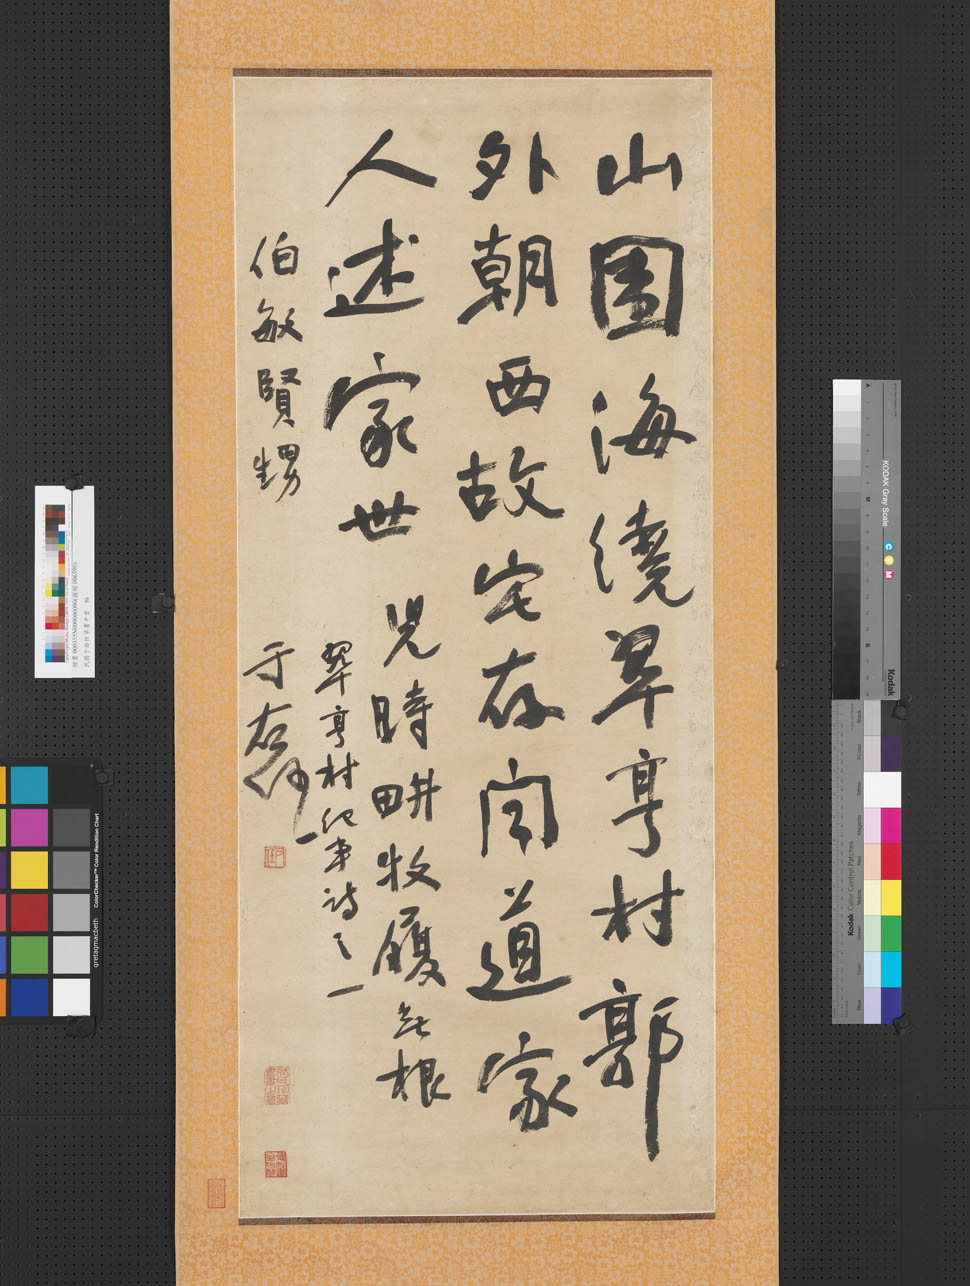 山圍海繞翠亨村郭
外朝西故宅存聞道家
人述家世
兒時畊牧履無根
翠亨村紀事詩之一
伯敏賢甥
于右任
KODAK Gray Scale
C
Y
M
A
M
B
Kodak
Kodak Color Control Patches
Blue
Cyan
Green
Yellow
Red
Magenta
White
Black
ColorChecker™ Color Rendition Chart
gretagmacbeth